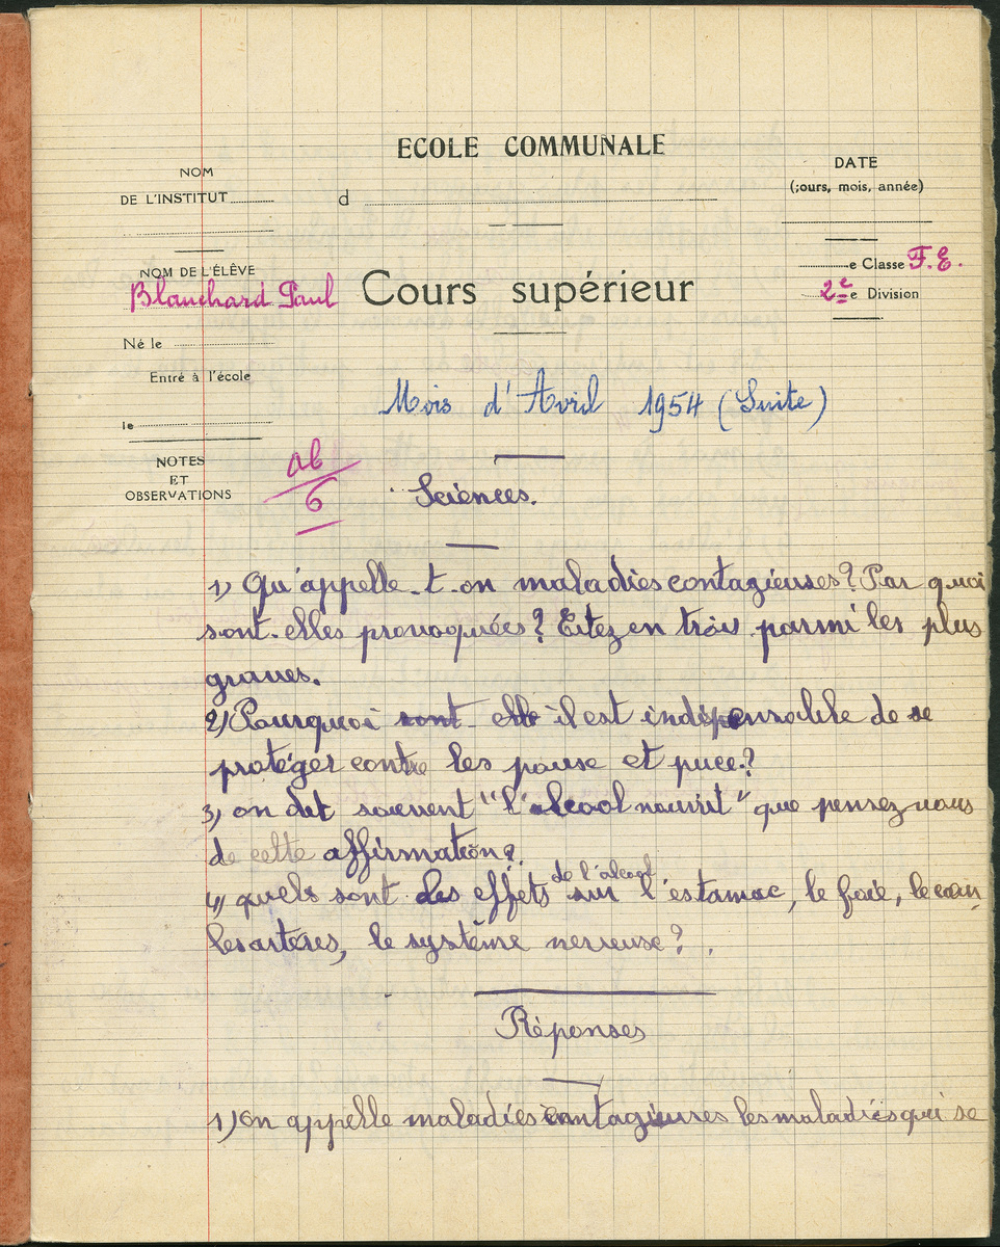 ECOLE COMMUNALE
NOM
DE L'INSTITUT
d
DATE
(jours, mois, année)
NOM DE L'ÉLÈVE
Blanchard Paul
Cours supérieur
e Classe F.E.
2e e Division
Né le
Entré à l'école
le
Mois d'Avril 1954 (Suite)
NOTES
ET
OBSERVATIONS
ab
6
Sciences.
1) Qu'appelle-t-on maladies contagieuses? Par quoi
sont-elles provoquées? Citez en trois parmi les plus
graves.
2) Pourquoi sont elle il est indispensable de se
protéger contre les pouse et puce?
3) on dit souvent "l'alcool nourrit" que pensez vous
de cette affirmation?
4) quels sont les effets de l'alcool sur l'estomac, le foie, le cœur,
les artères, le système nerveuse?
Réponses
1) on appelle maladies contagieuses les maladies qui se